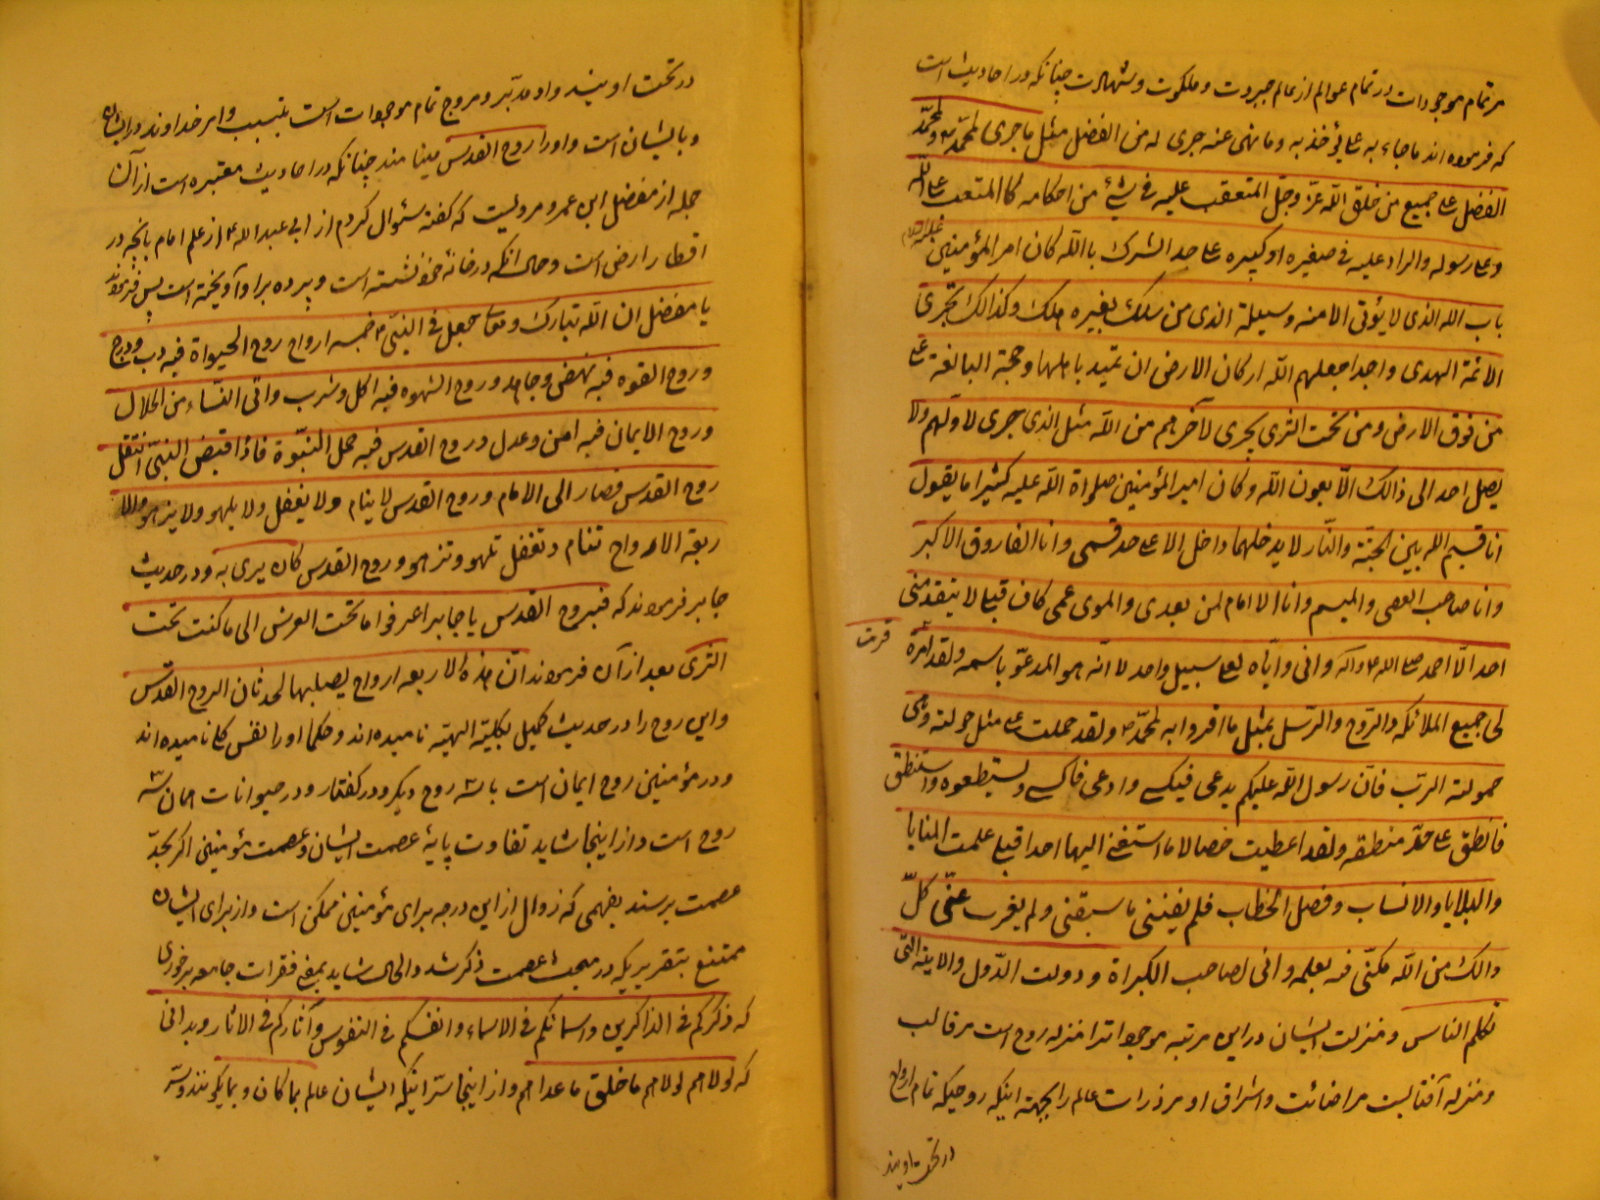 مر تمام موجودات در تمام عوالم از عالم جبروت و ملکوت و شهادت چنانکه در احادیث است
که فرموده اند ما جاء به علی آخذ به وما نهی عنه جری له من الفضل مثل ما جری لمحمد ص ولمحمد
الفضل علی جمیع من خلق الله عز وجل المتعقب علیه فی شیء من احکامه کالمتعقب علی الله
وعلی رسوله والراد علیه فی صغیره او کبیره علی حد الشرک باالله کان امیر المؤمنین علیه السلام
باب الله الذی لا یؤتی الا منه وسبیله الذی من سلک بغیره هلک وکذالک تجری
الائمة الهدی واحدا جعلهم الله ارکان الارض ان تمید باهلها وحجة البالغة علی
من فوق الارض ومن تحت الثری یجری لآخرهم من الله مثل الذی جری لاولهم ولا
یصل احد الی ذالک الا بعون الله وکان امیر المؤمنین صلواة الله علیه کثیرا ما یقول
انا قسیم الله بین الجنة والنار لا یدخلهما داخل الا علی حد قسمی وانا الفاروق الاکبر
وانا صاحب العصی والمیسم وانا الامام لمن بعدی والمودی عمی کان قبلی لا یتقدمنی
احد الا احمد صلی الله علیه وآله وانی وایاه لعلی سبیل واحد الا انه هو المدعو باسمه ولقد اقرة
قرت
لی جمیع الملائکه والروح والرسل بمثل ما اقروا به لمحمد ص ولقد حملت علی مثل حمولته وهی
حمولته الرب فان رسول الله علیکم یدعی فیکسی وادعی فاکسی ویستطعوه واستنطق
فانطق علی حد منطقه ولقد اعطیت خصالا ما استبقنی الیها احد قبلی علمت المنایا
والبلایا والانساب وفصل الخطاب فلم یفتنی ما سبقنی ولم یغرب عنی کل
ذالک من الله مکننی فیه بعلمه وانی لصاحب الکبراة ودولت الدول والایته التی
تکلم الناس و منزلت ایشان در این مرتبه موجوداترا منزله روح است مر قالب
ومنزله آفتابست مر اضائت واشراق او مر ذرات عالم را بجهته اینکه روحیکه تمام ارواح
در تحت اویند
در تحت اویند و او مدبر و مروج تمام موجودات است بتسبب و امر خداوند در ایشان
و با ایشان است و او را روح القدس مینامند چنانکه در احادیث معتبره است از آن
جمله از مفضل ابن عمر و مرویست که گفته سئوال کردم از ابی عبد الله ع از علم امام بآنچه در
اقطار ارض است و حال آنکه در خانهٔ خود نشسته است و پرده بر او آویخته است پس فرمودند
یا مفضل ان الله تبارک وتعالی جعل فی النبی ص خمسه ارواح روح الحیواة فیه دب ودرج
وروح القوه فیه نهض وجاهد وروح الشهوه فیه اکل وشرب واتی النساء من الحلال
وروح الایمان فیه امن وعدل وروح القدس فیه حمل النبوة فاذا قبض النبی انتقل
روح القدس فصار الی الامام وروح القدس لا ینام ولا یغفل ولا یلهو ولا یزهو والا
ربعه الارواح تنام وتغفل تلهو وتزهو وروح القدس کان یری به و در حدیث
جابر فرمودند که فبروح القدس یا جابر اعرفوا ما تحت العرش الی ما کنت تحت
الثری بعد از آن فرمودند ان هذه الاربعه ارواح یصیبها لحدثان الروح القدس
و این روح را در حدیث کمیل بکلیته الهیته نامیده اند و حکما او را نفس کلی نامیده اند
و در مؤمنین روح ایمان است با سه روح دیگر و در کفتار و در حیوانات همان سه
روح است و از اینجا شاید تفاوت پایهٔ عصمت ایشان و عصمت مؤمنین اگر بحد
عصمت برسند بفهمی که زوال از این درجه برای مؤمنین ممکن است و از برای ایشان
ممتنع بتقریریکه در مبحث عصمت ذکر شد و الحال شاید بمعنی فقرات جامعه برخوری
که ذکرکم فی الذاکرین واسمائکم فی الاسماء وانفسکم فی النفوس وآثارکم فی الاثار و بدانی
که لولاهم لولاهم ما خلق ما عداهم و از اینجا سر اینکه ایشان عالم بما کان و بما یکونند و سر